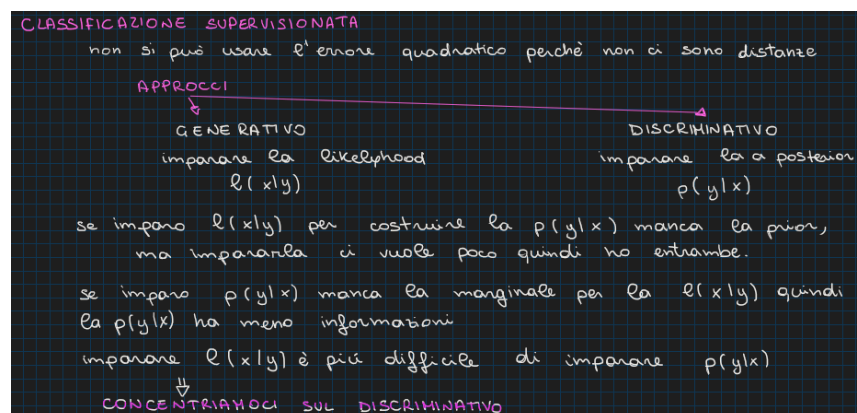 CLASSIFICAZIONE SUPERVISIONATA
non si può usare l'errore quadratico perchè non ci sono distanze
APPROCCI
GENERATIVO DISCRIMINATIVO
imparare la likelyhood imparare la a posterior
l(x|y) p(y|x)
se imparo l(x|y) per costruire la p(y|x) manca la prior,
ma impararla ci vuole poco quindi ho entrambe.
se imparo p(y|x) manca la marginale per la l(x|y) quindi
la p(y|x) ha meno informazioni
imparare l(x|y) è più difficile di imparare p(y|x)
CONCENTRIAMOCI SUL DISCRIMINATIVO